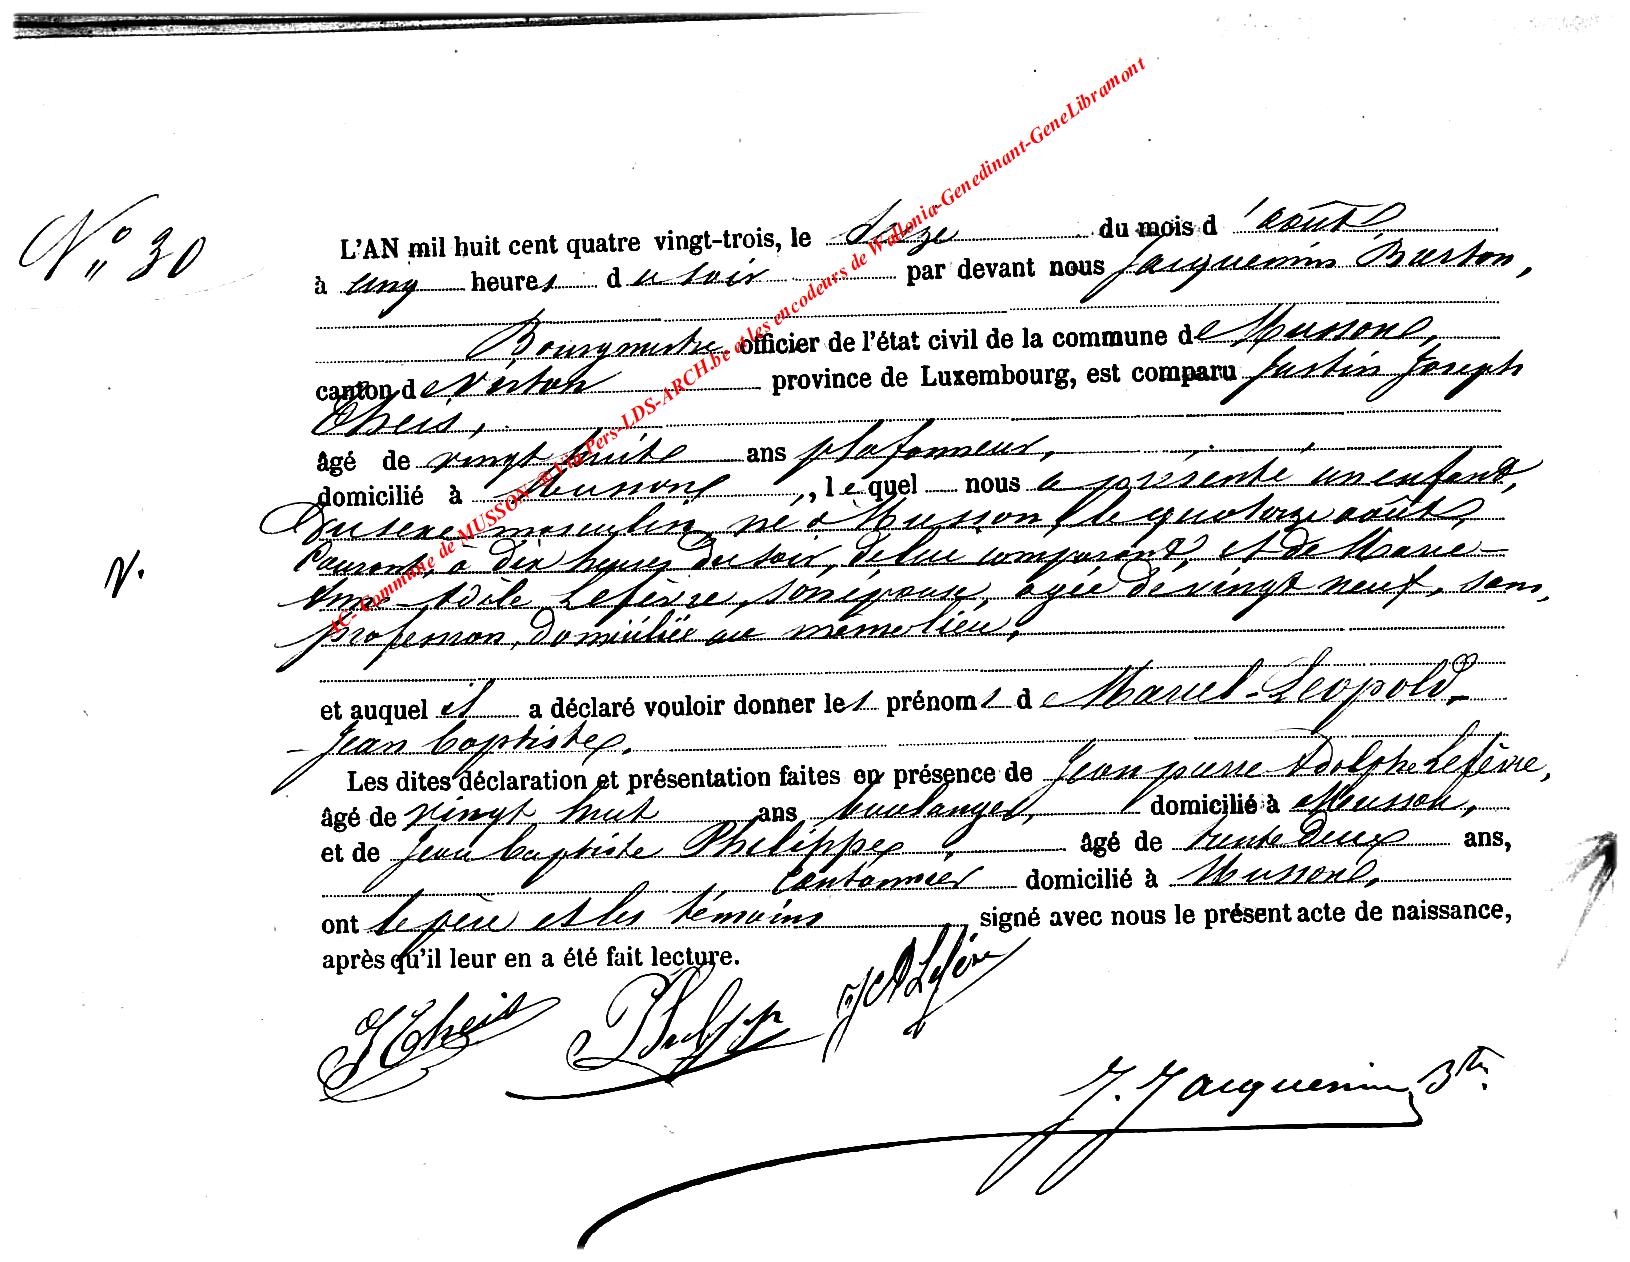 N° 30
L'AN mil huit cent quatre vingt-trois, le seize du mois d'août,
à cinq heures du soir par devant nous Jacquemin Barton,
Bourgmestre officier de l'état civil de la commune de Musson,
canton de Virton province de Luxembourg, est comparu Justin Joseph
Theis,
âgé de vingt huit ans plafonneur,
domicilié à Musson, lequel nous a présenté un enfant,
du sexe masculin, né à Musson, le quatorze août,
courant, à dix heures du soir, de lui comparant, et de Marie-
Adèle Lefèvre, son épouse, âgée de vingt neuf, sans,
profession, domiciliée au même lieu,
et auquel il a déclaré vouloir donner les prénoms de Marcel-Léopold-
-Jean Baptiste.
Les dites déclaration et présentation faites en présence de Jean pierre Adolphe Lefèvre,
âgé de vingt huit ans boulanger, domicilié à Musson,
et de Jean Baptiste Philippe, âgé de trente deux ans,
cantonnier domicilié à Musson,
ont le père et les témoins signé avec nous le présent acte de naissance,
après qu'il leur en a été fait lecture.
V.
J Theis Philipp J A Lefèvre
J. Jacquemin Btn
AC- Commune de MUSSON Pers-LDS-ARCH.be et les encodeurs de Wallonia-Genedinant-GeneLibramont